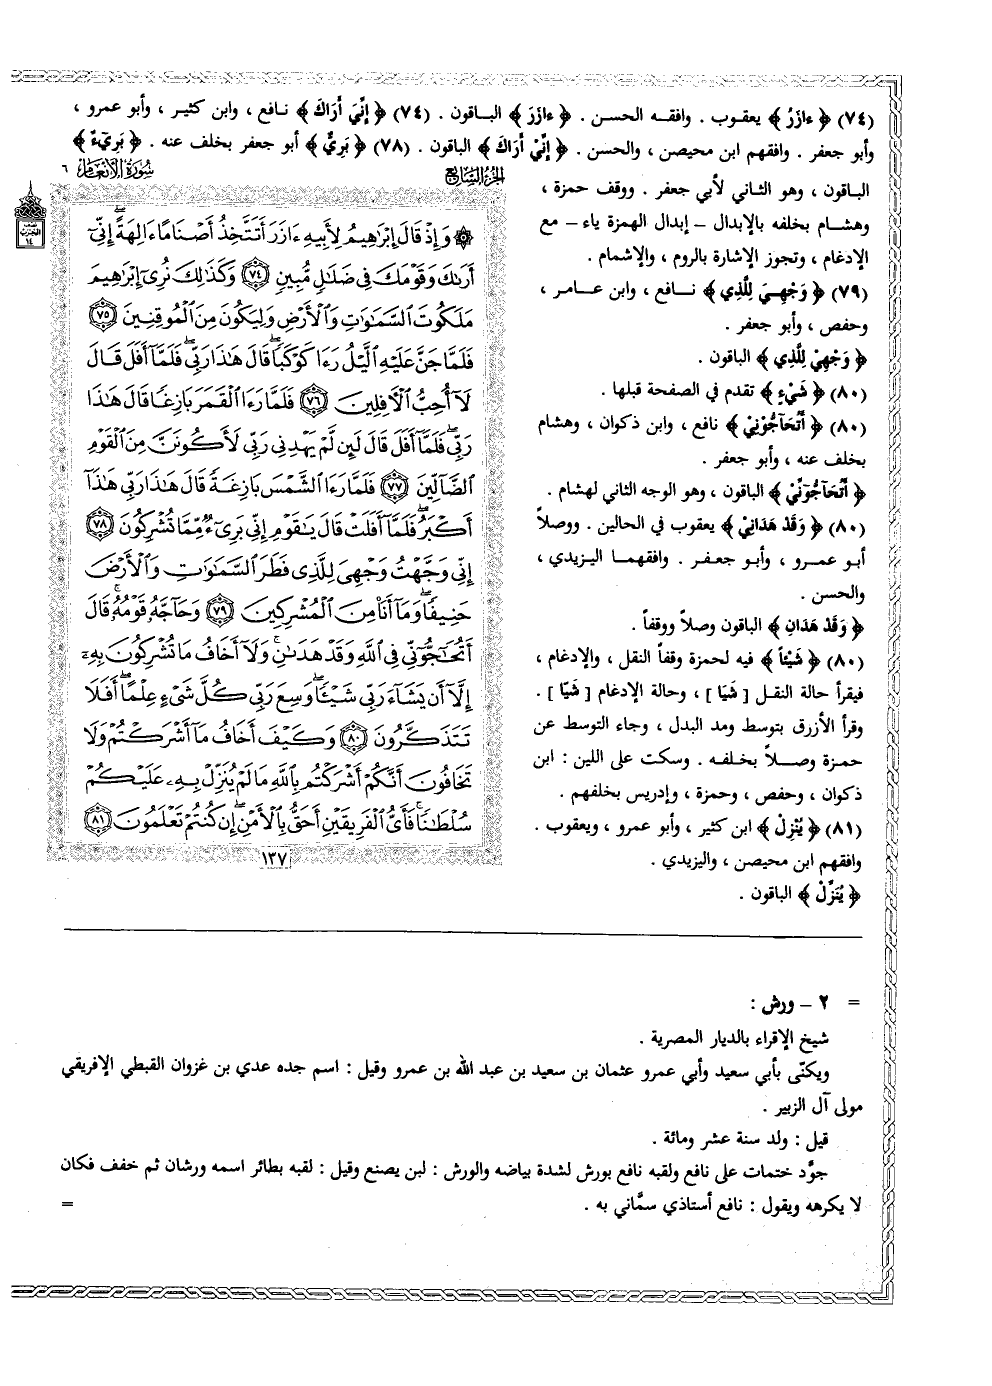 (٧٤) ﴿ ءازَرُ ﴾ يعقوب . وافقه الحسن . ﴿ ءازَرَ ﴾ الباقون . (٧٤) ﴿ إِنِّيَ أَرَاكَ ﴾ نافع ، وابن كثير ، وأبو عمرو ،
وأبو جعفر . وافقهم ابن محيصن ، والحسن . ﴿ إِنِّيْ أَرَاكَ ﴾ الباقون . (٧٨) ﴿ بَرِيٌّ ﴾ أبو جعفر بخلف عنه . ﴿ بَرِيءٌ ﴾
الباقون ، وهو الثاني لأبي جعفر . ووقف حمزة ،
وهشام بخلفه بالإبدال – إبدال الهمزة ياء – مع
الإدغام ، وتجوز الإشارة بالروم ، والإشمام .
(٧٩) ﴿ وَجْهِيَ لِلَّذِي ﴾ نافع ، وابن عامر ،
وحفص ، وأبو جعفر .
﴿ وَجْهِيْ لِلَّذِي ﴾ الباقون .
(٨٠) ﴿ شَيْءٍ ﴾ تقدم في الصفحة قبلها .
(٨٠) ﴿ أَتُحَآجُّونِيْ ﴾ نافع ، وابن ذكوان ، وهشام
بخلف عنه ، وأبو جعفر .
﴿ أَتُحَآجُّونِّيْ ﴾ الباقون ، وهو الوجه الثاني لهشام .
(٨٠) ﴿ وَقَدْ هَدَانِيْ ﴾ يعقوب في الحالين . ووصلاً
أبو عمرو ، وأبو جعفر . وافقهما اليزيدي ،
والحسن .
﴿ وَقَدْ هَدَانِ ﴾ الباقون وصلاً ووقفاً .
(٨٠) ﴿ شَيْئاً ﴾ فيه لحمزة وقفاً النقل ، والإدغام ،
فيقرأ حالة النقل [ شَيَا ] ، وحالة الإدغام [ شَيّا ] .
وقرأ الأزرق بتوسط ومد البدل ، وجاء التوسط عن
حمزة وصلاً بخلفه . وسكت على اللين : ابن
ذكوان ، وحفص ، وحمزة ، وإدريس بخلفهم .
(٨١) ﴿ يُنْزِلْ ﴾ ابن كثير ، وأبو عمرو ، ويعقوب .
وافقهم ابن محيصن ، واليزيدي .
﴿ يُنَزِّلْ ﴾ الباقون .
الجزء السابع
سورة الأنعام ٦
۞ وَإِذْ قَالَ إِبْرَٰهِيمُ لِأَبِيهِ ءَازَرَ أَتَتَّخِذُ أَصْنَامًا ءَالِهَةً إِنِّىٓ
أَرَىٰكَ وَقَوْمَكَ فِى ضَلَٰلٍ مُّبِينٍ ٧٤ وَكَذَٰلِكَ نُرِىٓ إِبْرَٰهِيمَ
مَلَكُوتَ ٱلسَّمَٰوَٰتِ وَٱلْأَرْضِ وَلِيَكُونَ مِنَ ٱلْمُوقِنِينَ ٧٥
فَلَمَّا جَنَّ عَلَيْهِ ٱلَّيْلُ رَءَا كَوْكَبًا ۖ قَالَ هَٰذَا رَبِّى ۖ فَلَمَّآ أَفَلَ قَالَ
لَآ أُحِبُّ ٱلْءَافِلِينَ ٧٦ فَلَمَّا رَءَا ٱلْقَمَرَ بَازِغًا قَالَ هَٰذَا
رَبِّى ۖ فَلَمَّآ أَفَلَ قَالَ لَئِن لَّمْ يَهْدِنِى رَبِّى لَأَكُونَنَّ مِنَ ٱلْقَوْمِ
ٱلضَّآلِّينَ ٧٧ فَلَمَّا رَءَا ٱلشَّمْسَ بَازِغَةً قَالَ هَٰذَا رَبِّى هَٰذَآ
أَكْبَرُ ۖ فَلَمَّآ أَفَلَتْ قَالَ يَٰقَوْمِ إِنِّى بَرِىٓءٌ مِّمَّا تُشْرِكُونَ ٧٨
إِنِّى وَجَّهْتُ وَجْهِىَ لِلَّذِى فَطَرَ ٱلسَّمَٰوَٰتِ وَٱلْأَرْضَ
حَنِيفًا ۖ وَمَآ أَنَا۠ مِنَ ٱلْمُشْرِكِينَ ٧٩ وَحَآجَّهُۥ قَوْمُهُۥ ۚ قَالَ
أَتُحَٰٓجُّوٓنِّى فِى ٱللَّهِ وَقَدْ هَدَىٰنِ ۚ وَلَآ أَخَافُ مَا تُشْرِكُونَ بِهِۦٓ
إِلَّآ أَن يَشَآءَ رَبِّى شَيْـًٔا ۗ وَسِعَ رَبِّى كُلَّ شَىْءٍ عِلْمًا ۗ أَفَلَا
تَتَذَكَّرُونَ ٨٠ وَكَيْفَ أَخَافُ مَآ أَشْرَكْتُمْ وَلَا
تَخَافُونَ أَنَّكُمْ أَشْرَكْتُم بِٱللَّهِ مَا لَمْ يُنَزِّلْ بِهِۦ عَلَيْكُمْ
سُلْطَٰنًا ۚ فَأَىُّ ٱلْفَرِيقَيْنِ أَحَقُّ بِٱلْأَمْنِ ۖ إِن كُنتُمْ تَعْلَمُونَ ٨١
١٣٧
= ٢ – ورش :
شيخ الإقراء بالديار المصرية .
ويكنّى بأبي سعيد وأبي عمرو عثمان بن سعيد بن عبد الله بن عمرو وقيل : اسم جده عدي بن غزوان القبطي الإفريقي
مولى آل الزبير .
قيل : ولد سنة عشر ومائة .
جوَّد ختمات على نافع ولقبه نافع بورش لشدة بياضه والورش : لبن يصنع وقيل : لقبه بطائر اسمه ورشان ثم خفف فكان
لا يكرهه ويقول : نافع أستاذي سمَّاني به . =